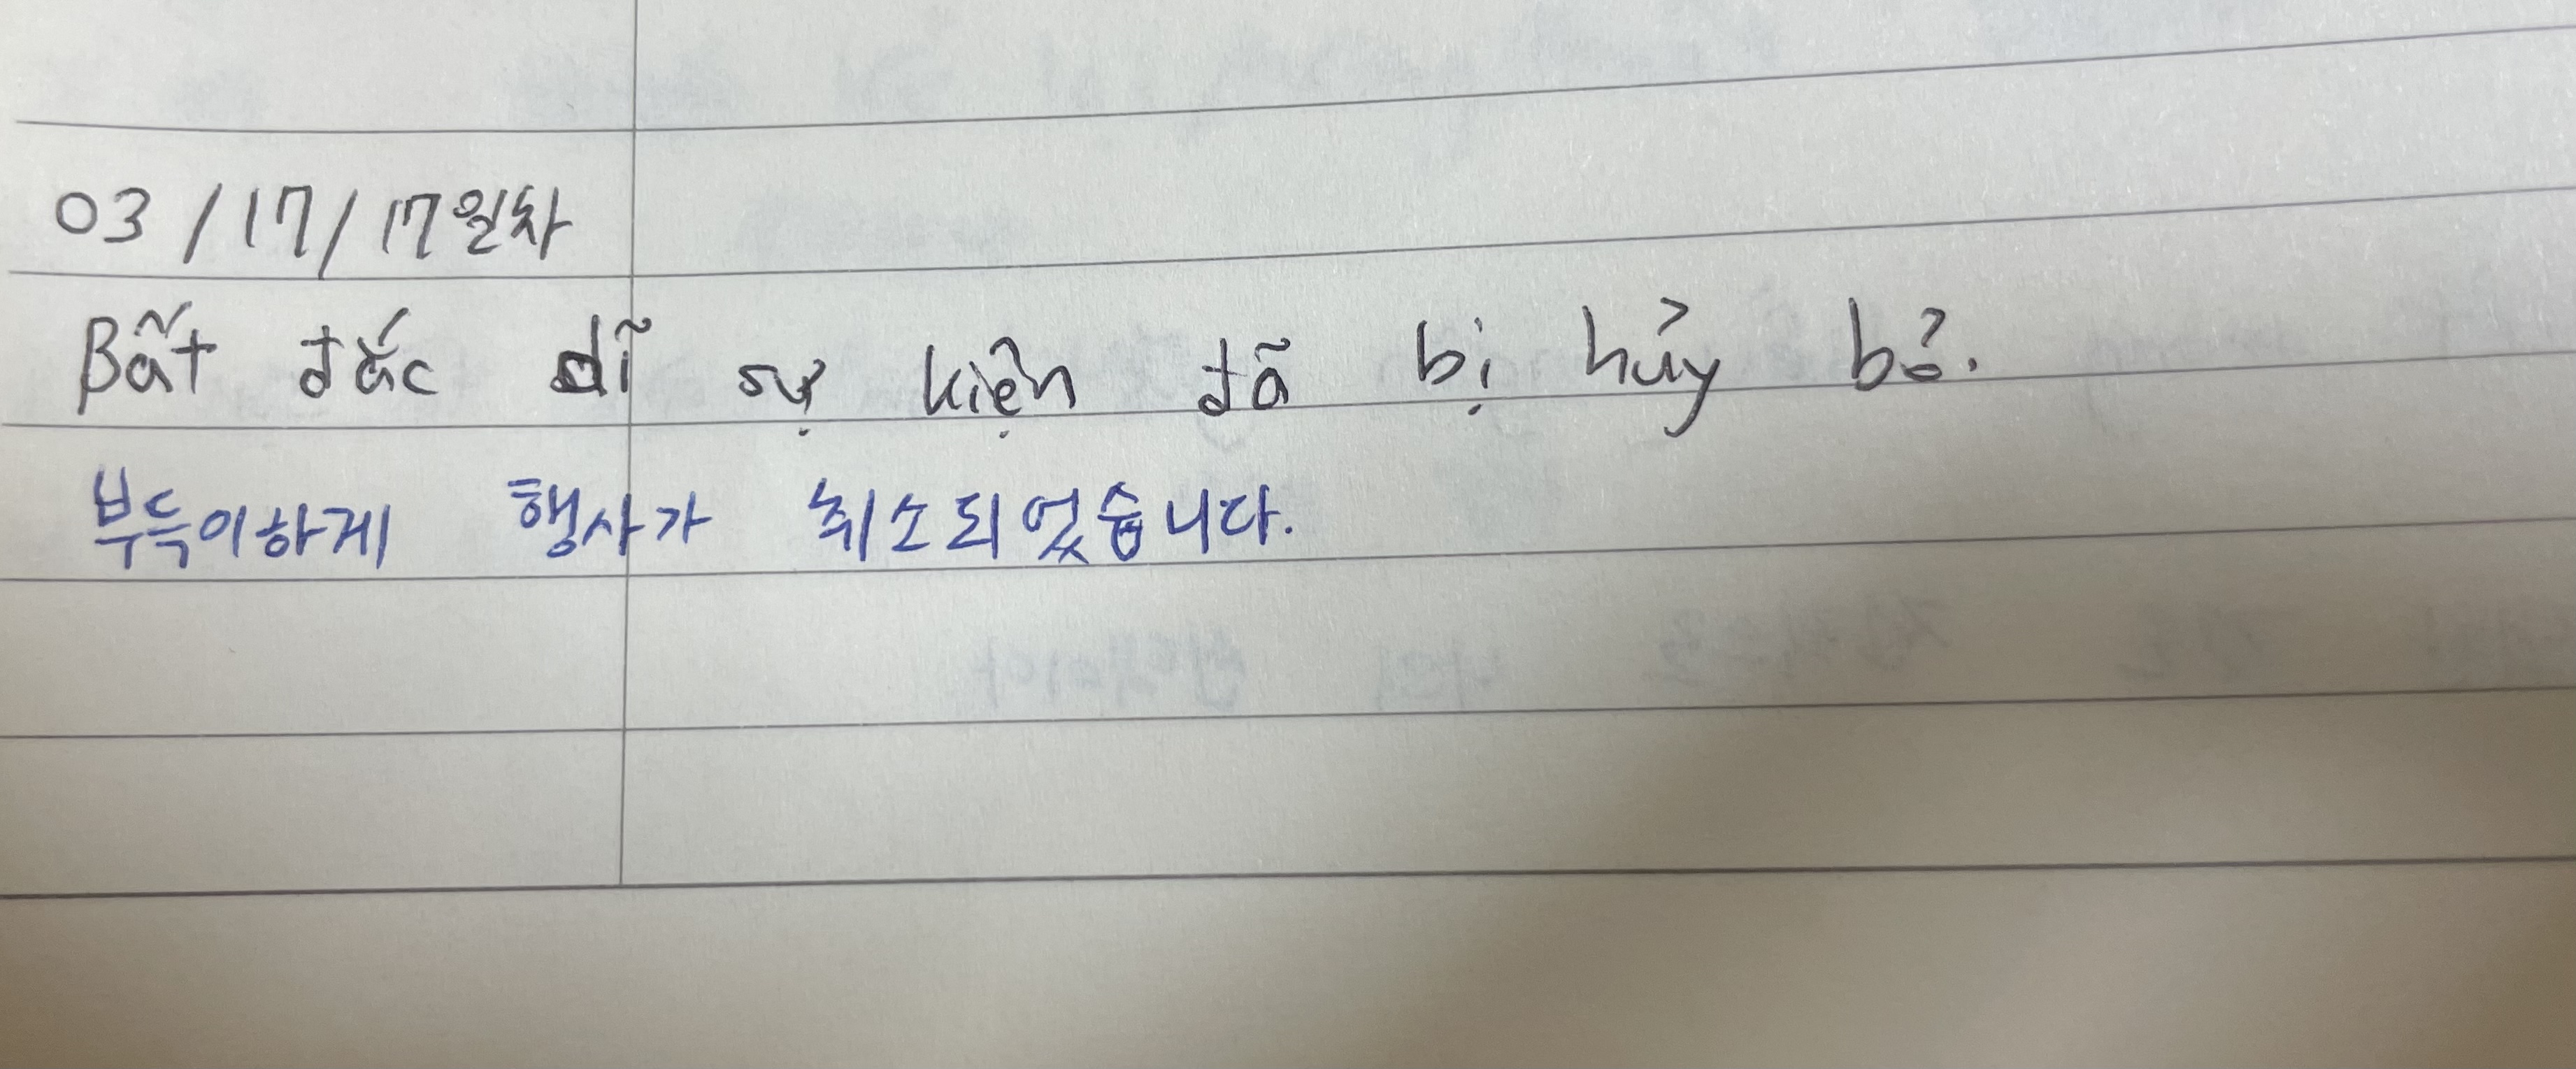 03/17/17일차
Bất đắc dĩ sự kiện đã bị hủy bỏ.
부득이하게 행사가 취소되었습니다.